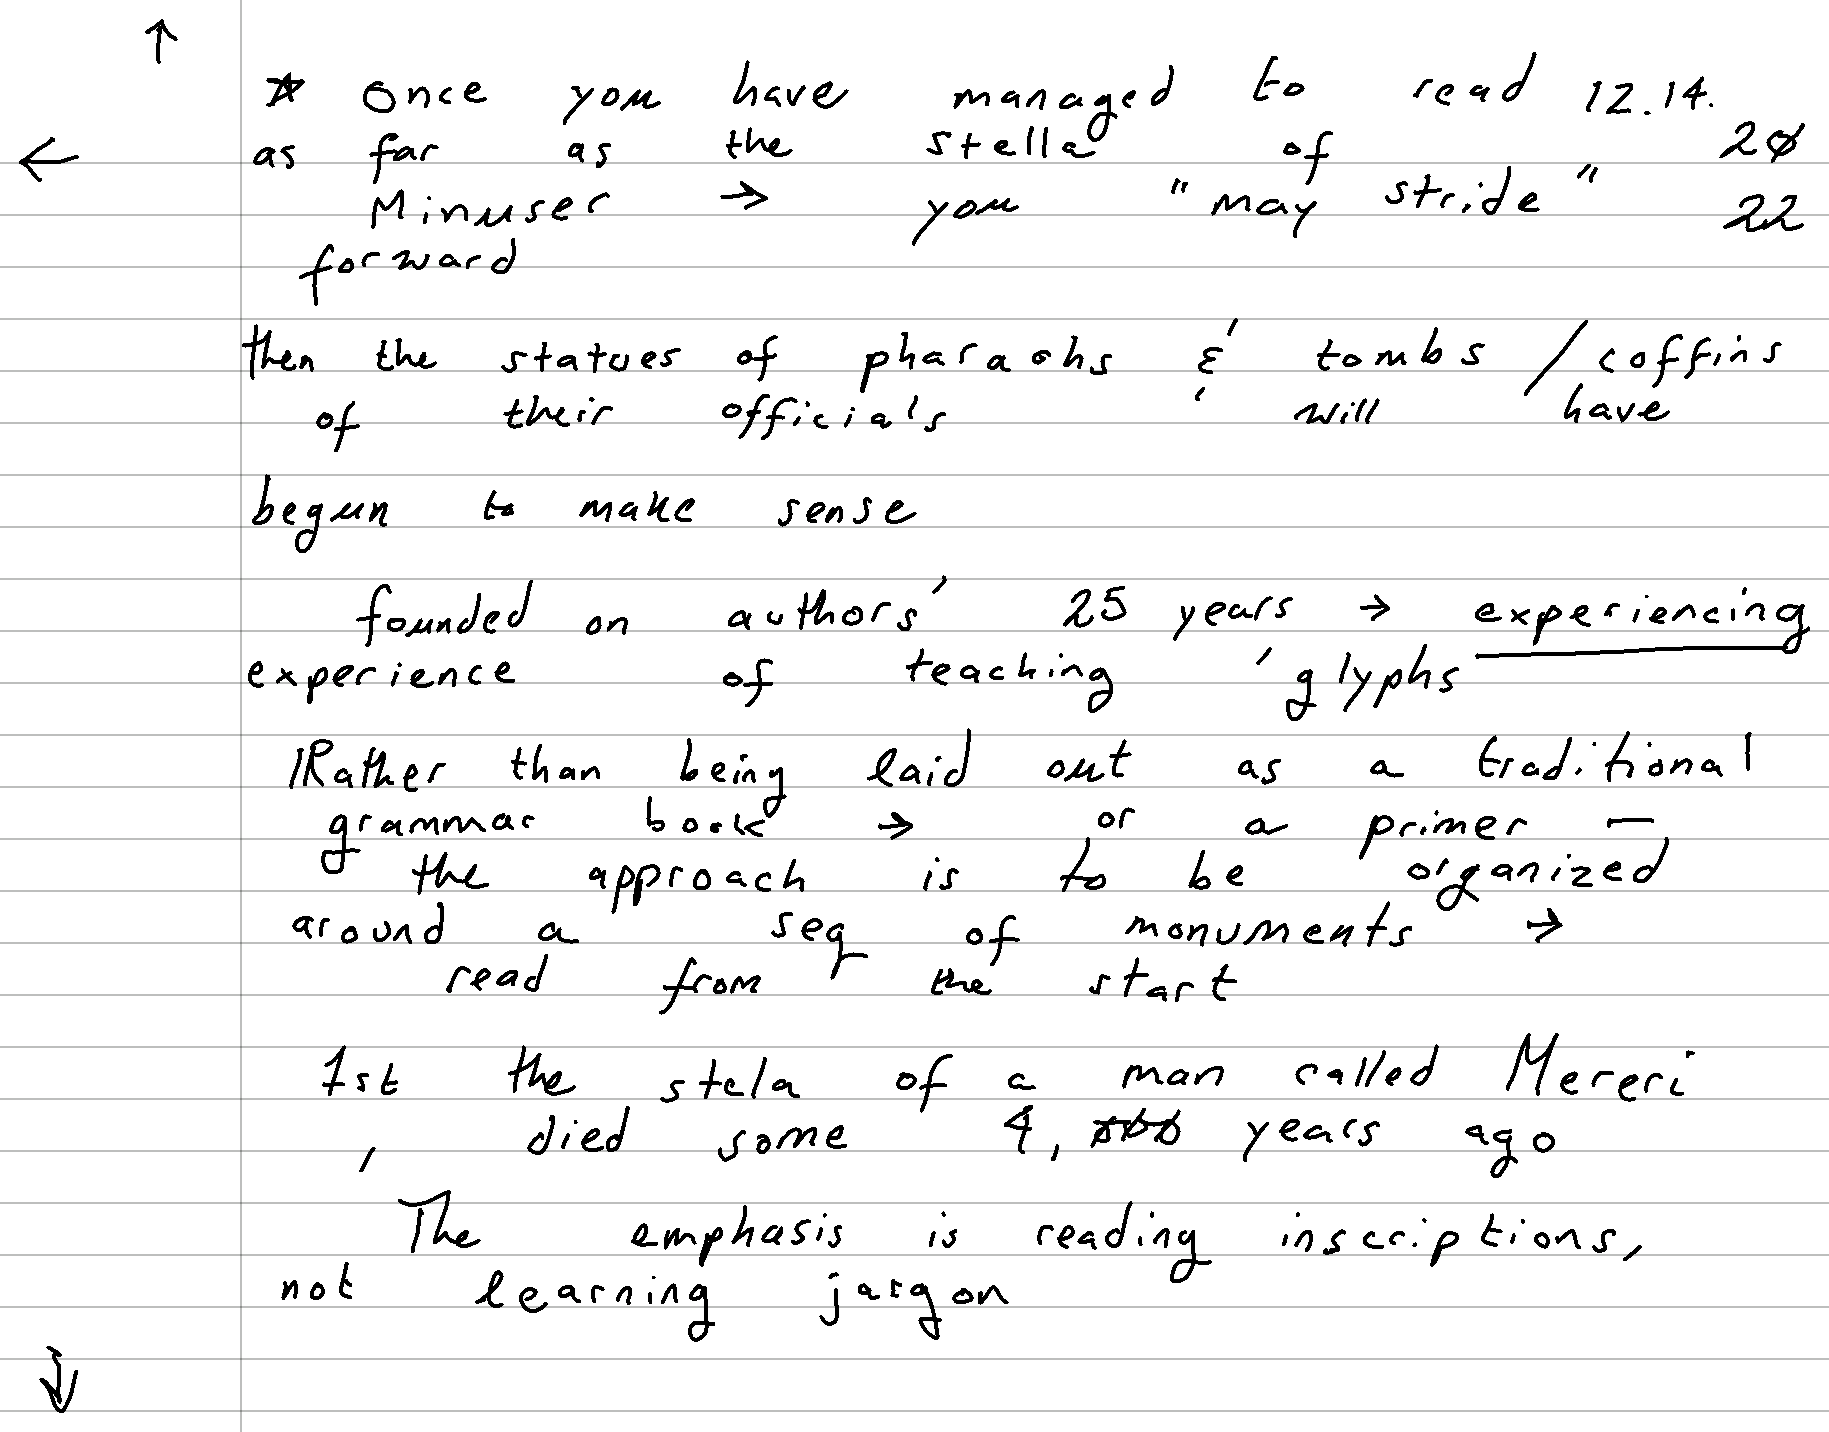 ↑
☆ Once you have managed to read 12.14.
← as far as the stella of 20
Minuser → you "may stride" 22
forward
then the statues of pharaohs & tombs / coffins
of their officials ' will have
begun to make sense
founded on authors' 25 years → experiencing
experience of teaching 'glyphs
Rather than being laid out as a traditional
grammar book → or a primer —
the approach is to be organized
around a seq of monuments →
read from the start
1st the stela of a man called Mereri
, died some 4,000 years ago
The emphasis is reading inscriptions,
not learning jargon
↓